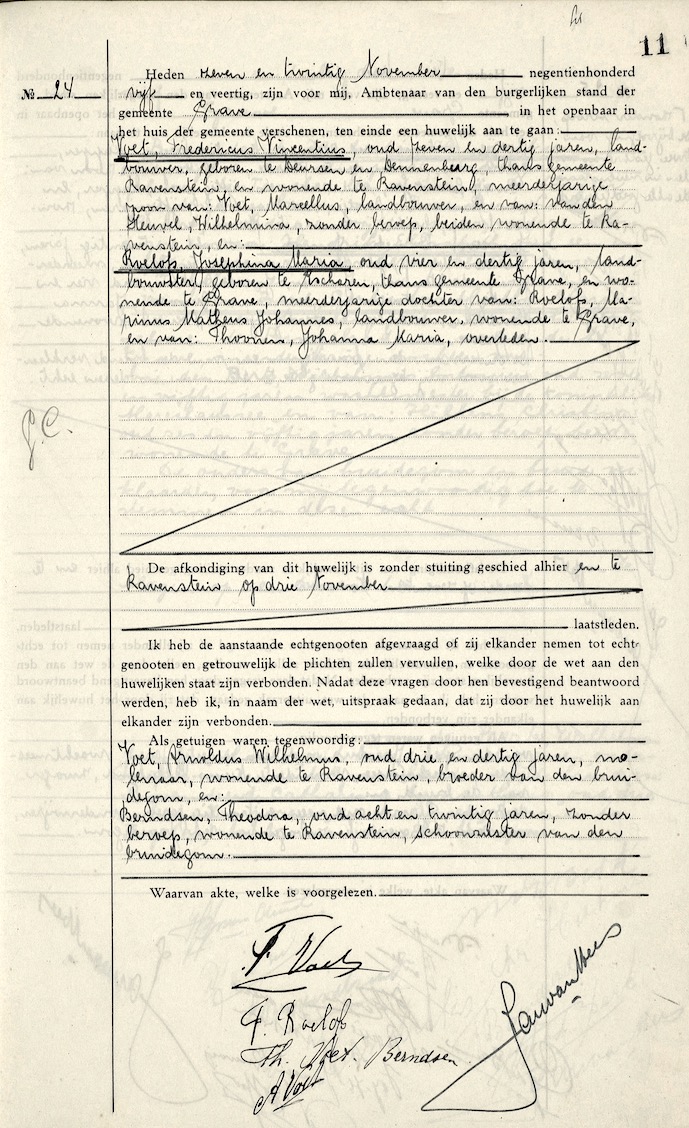 11
Heden zeven en twintig November negentienhonderd
No 24 vijf en veertig, zijn voor mij, Ambtenaar van den burgerlijken stand der
gemeente Grave in het openbaar in
het huis der gemeente verschenen, ten einde een huwelijk aan te gaan:
Voet, Fredericus Vincentius, oud zeven en dertig jaren, land-
bouwer, geboren te Deursen en Dennenburg, thans gemeente
Ravenstein, en wonende te Ravenstein, meerderjarige
zoon van: Voet, Marcellus, landbouwer, en van: van den
Heuvel, Wilhelmina, zonder beroep, beiden wonende te Ra-
venstein, en:
Roelofs, Josephina Maria, oud vier en dertig jaren, land-
bouwster, geboren te Escharen, thans gemeente Grave, en wo-
nende te Grave, meerderjarige dochter van: Roelofs, Ma-
rinus Matheus Johannes, landbouwer, wonende te Grave,
en van: Thoonen, Johanna Maria, overleden.
G.C.
De afkondiging van dit huwelijk is zonder stuiting geschied alhier en te
Ravenstein op drie November
laatstleden.
Ik heb de aanstaande echtgenooten afgevraagd of zij elkander nemen tot echt-
genooten en getrouwelijk de plichten zullen vervullen, welke door de wet aan den
huwelijken staat zijn verbonden. Nadat deze vragen door hen bevestigend beantwoord
werden, heb ik, in naam der wet, uitspraak gedaan, dat zij door het huwelijk aan
elkander zijn verbonden.
Als getuigen waren tegenwoordig:
Voet, Arnoldus Wilhelmus, oud drie en dertig jaren, mo-
lenaar, wonende te Ravenstein, broeder van den brui-
degom, en:
Berndsen, Theodora, oud acht en twintig jaren, zonder
beroep, wonende te Ravenstein, schoonzuster van den
bruidegom.
Waarvan akte, welke is voorgelezen.
F. Voet
F. Roelofs
Th. Voet. Berndsen
A Voet